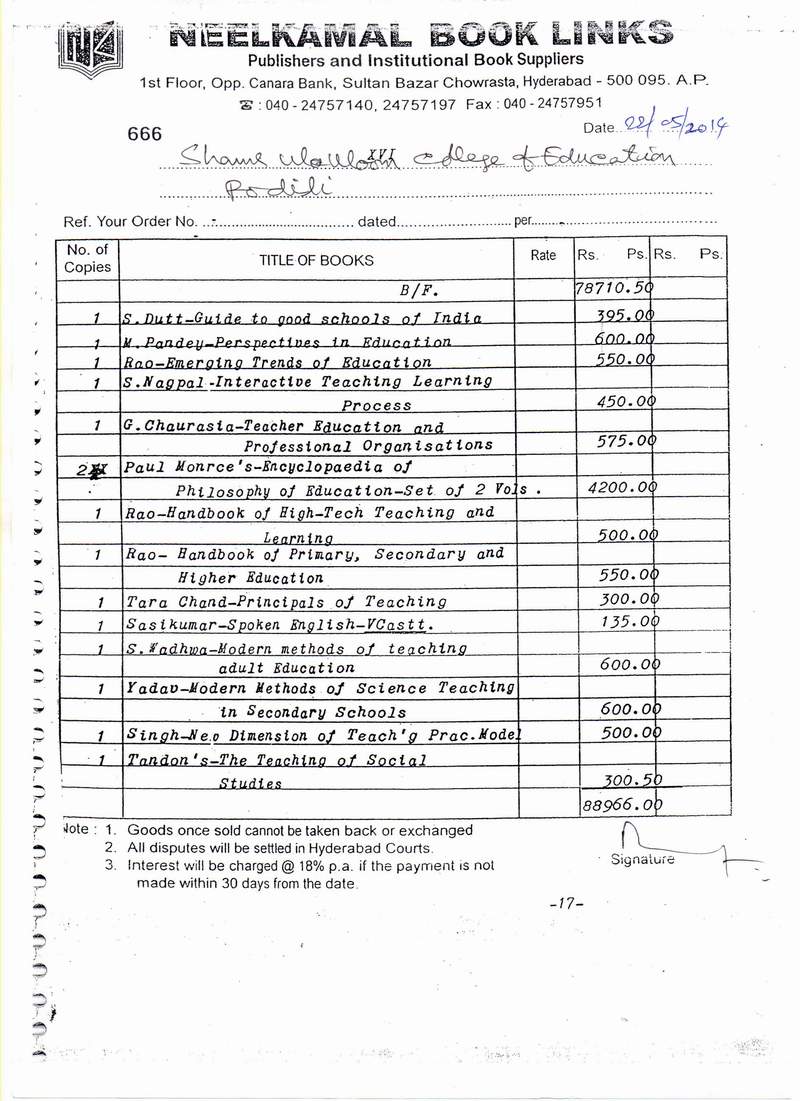 NEELKAMAL BOOK LINKS
Publishers and Institutional Book Suppliers
1st Floor, Opp. Canara Bank, Sultan Bazar Chowrasta, Hyderabad - 500 095. A.P.
☎ : 040 - 24757140, 24757197 Fax : 040 - 24757951
666 Date 22/05/2014
College of Education
Podili
Ref. Your Order No. dated per
No. of Copies TITLE OF BOOKS Rate Rs. Ps. Rs. Ps.
B/F. 78710.50
1 S.Dutt-Guide to good schools of India 395.00
1 M.Pandey-Perspectives in Education 600.00
1 Rao-Emerging Trends of Education 550.00
1 S.Nagpal-Interactive Teaching Learning
Process 450.00
1 G.Chaurasia-Teacher Education and
Professional Organisations 575.00
2 Paul Monroe's-Encyclopaedia of
Philosophy of Education-Set of 2 Vols. 4200.00
1 Rao-Handbook of High-Tech Teaching and
Learning 500.00
1 Rao- Handbook of Primary, Secondary and
Higher Education 550.00
1 Tara Chand-Principals of Teaching 300.00
1 Sasikumar-Spoken English-VCastt. 135.00
1 S.Wadhwa-Modern methods of teaching
adult Education 600.00
1 Yadav-Modern Methods of Science Teaching
in Secondary Schools 600.00
1 Singh-Neo Dimension of Teach'g Prac.Model 500.00
1 Tandon's-The Teaching of Social
Studies 300.50
88966.00
Note : 1. Goods once sold cannot be taken back or exchanged
2. All disputes will be settled in Hyderabad Courts.
3. Interest will be charged @ 18% p.a. if the payment is not
made within 30 days from the date.
Signature
-17-